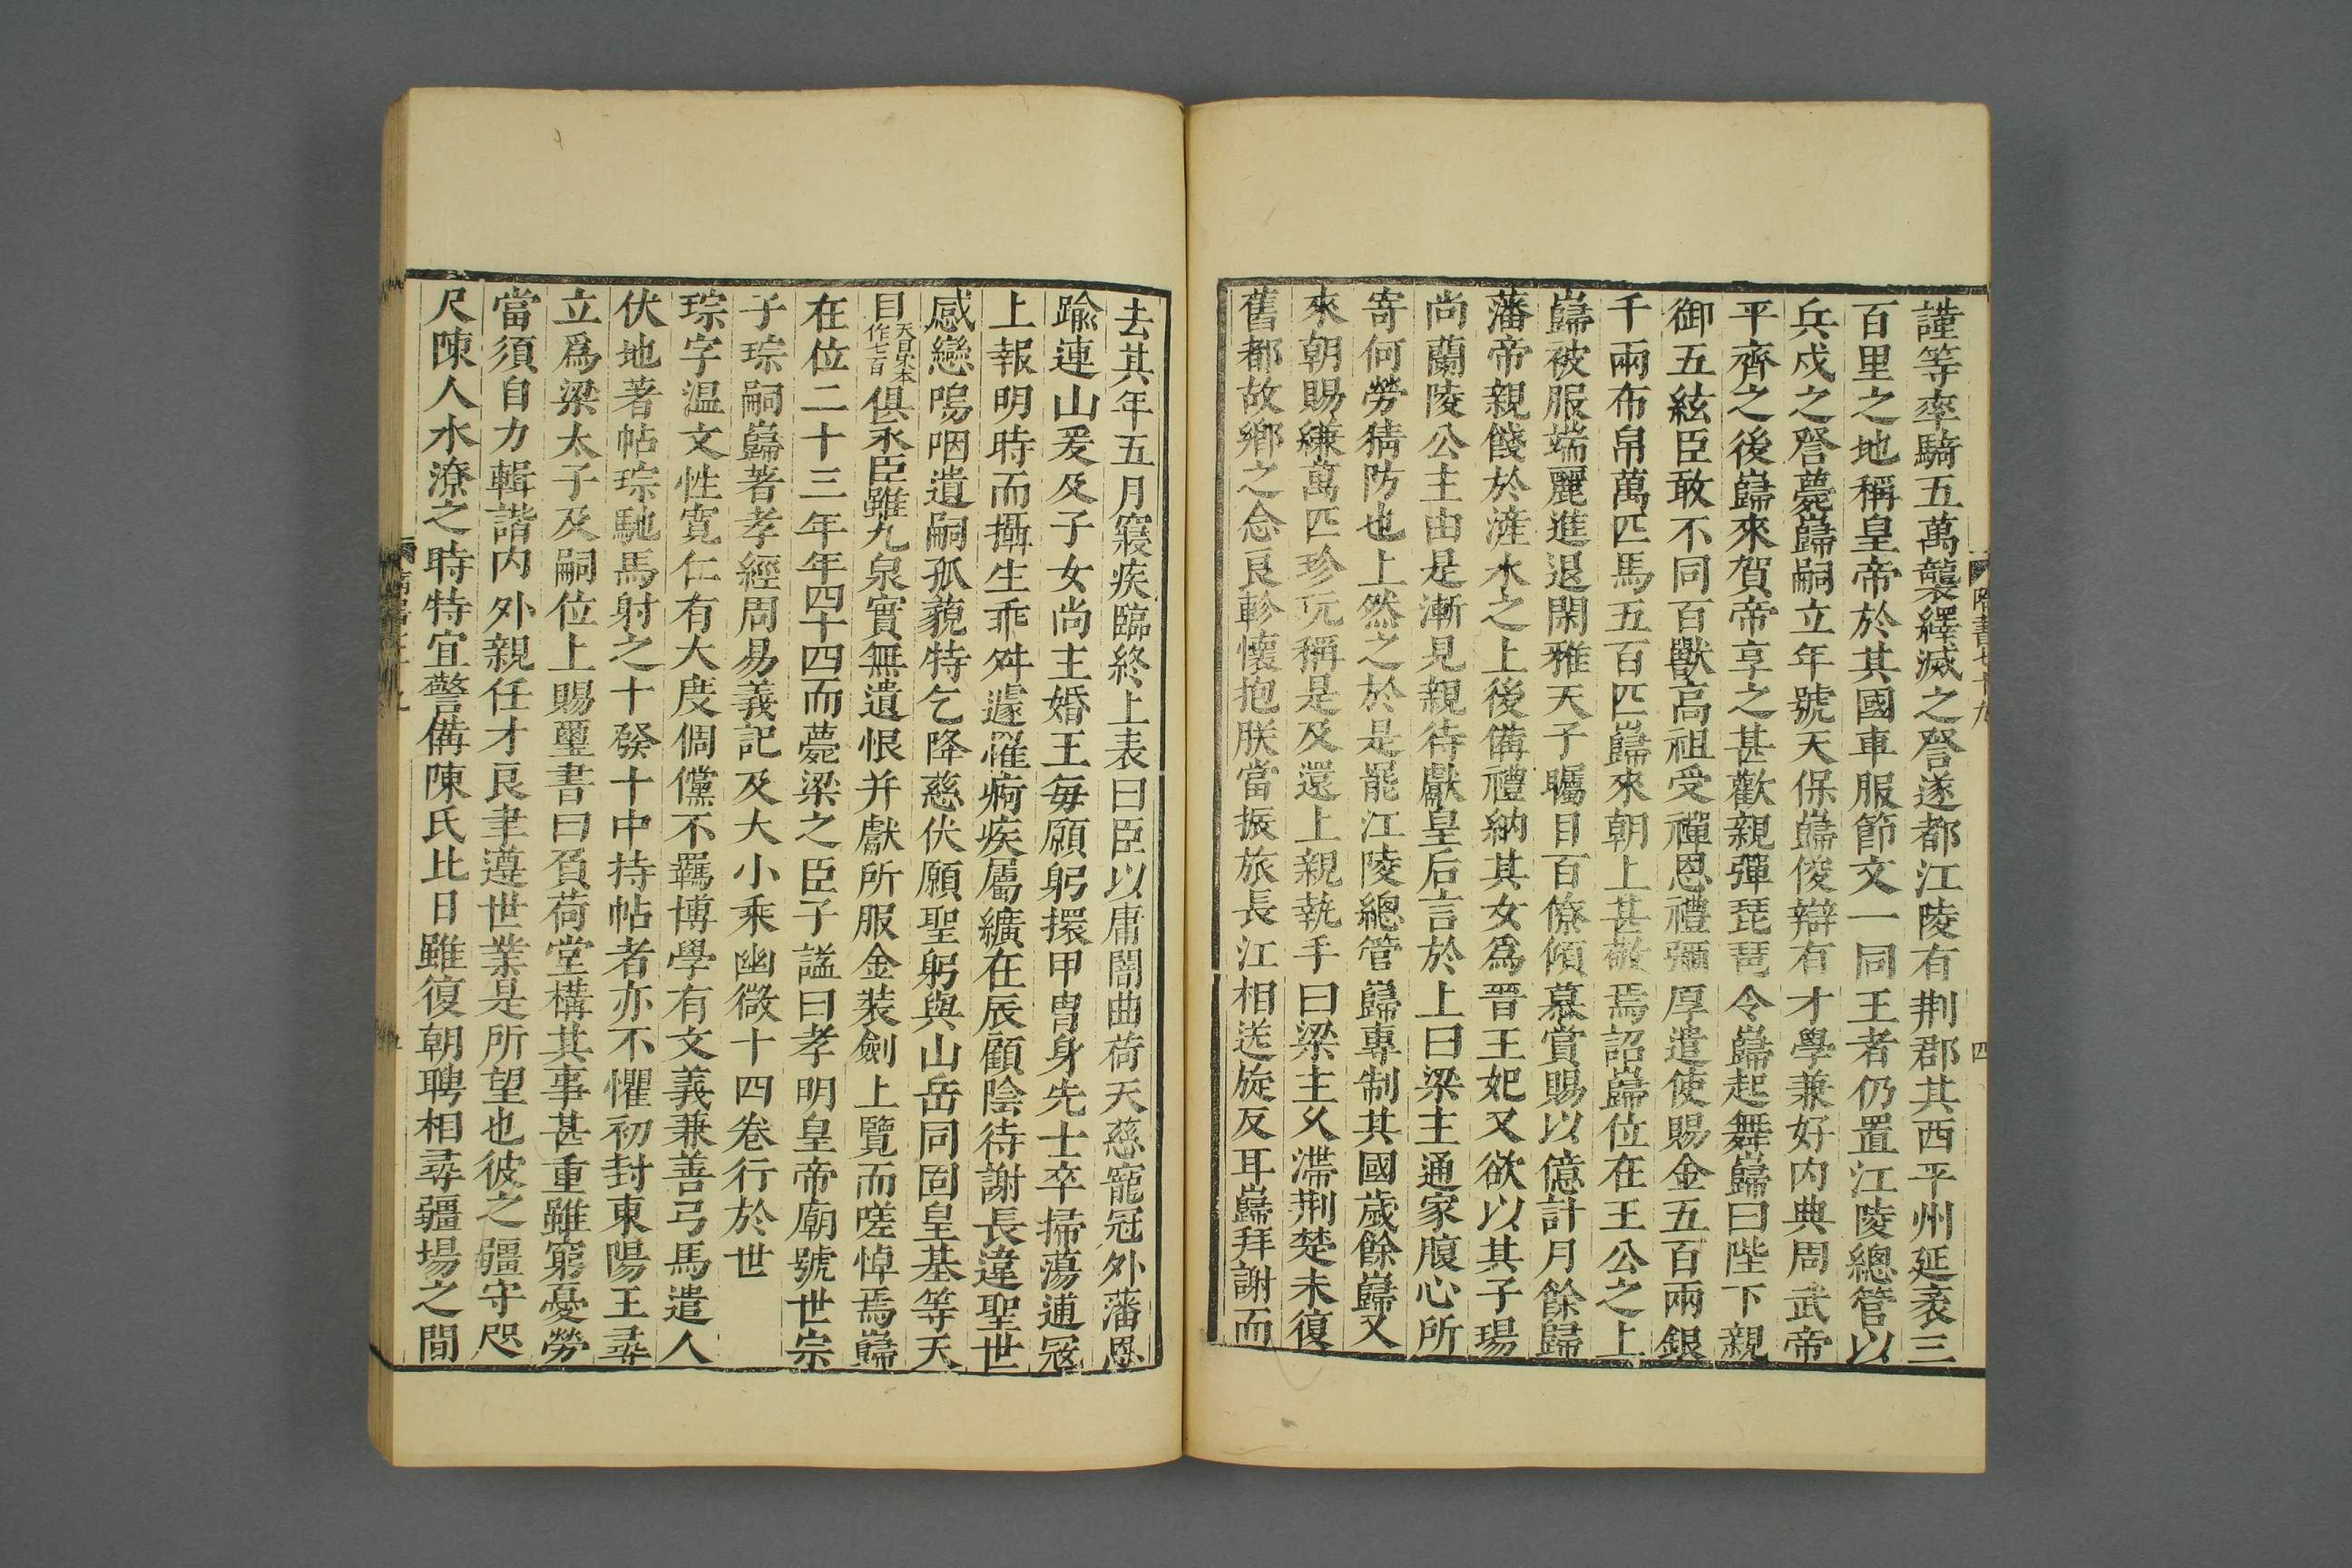 謹等率騎五萬襲繹滅之詧遂都江陵有荆郡其西平州延袤三
百里之地稱皇帝於其國車服節文一同王者仍置江陵總管以
兵戍之詧薨巋嗣立年號天保巋俊辯有才學兼好内典周武帝
平齊之後巋來賀帝享之甚歡親彈琵琶令巋起舞巋曰陛下親
御五絃臣敢不同百獸高祖受禪恩禮彌厚遣使賜金五百兩銀
千兩布帛萬匹馬五百匹巋來朝上甚敬焉詔巋位在王公之上
巋被服端麗進退閑雅天子矚目百僚傾慕賞賜以億計月餘歸
藩帝親餞於滻水之上後備禮納其女爲晋王妃又欲以其子瑒
尚蘭陵公主由是漸見親待獻皇后言於上曰梁主通家腹心所
寄何勞猜防也上然之於是罷江陵總管巋專制其國歲餘巋又
來朝賜縑萬匹珍玩稱是及還上親執手曰梁主久滯荆楚未復
舊都故鄉之念良軫懷抱朕當振旅長江相送旋反耳巋拜謝而
隋書七十九
四
去其年五月寢疾臨終上表曰臣以庸闇曲荷天慈寵冠外藩恩
踰連山爰及子女尚主婚王毎願躬擐甲冑身先士卒掃蕩逋寇
上報明時而攝生乖舛遽罹痾疾屬纊在辰顧陰待謝長違聖世
感戀嗚咽遺嗣孤藐特乞降慈伏願聖躬與山岳同固皇基等天
日天日宋本作七百俱永臣雖九泉實無遺恨并獻所服金裝劍上覽而嗟悼焉巋
在位二十三年年四十四而薨梁之臣子諡曰孝明皇帝廟號世宗
子琮嗣巋著孝經周易義記及大小乘幽微十四卷行於世
琮字温文性寬仁有大度倜儻不羈博學有文義兼善弓馬遣人
伏地著帖琮馳馬射之十發十中持帖者亦不懼初封東陽王尋
立爲梁太子及嗣位上賜璽書曰負荷堂構其事甚重雖窮憂勞
當須自力輯諧内外親任才良聿遵世業是所望也彼之疆守咫
尺陳人水潦之時特宜警備陳氏比日雖復朝聘相尋疆場之間